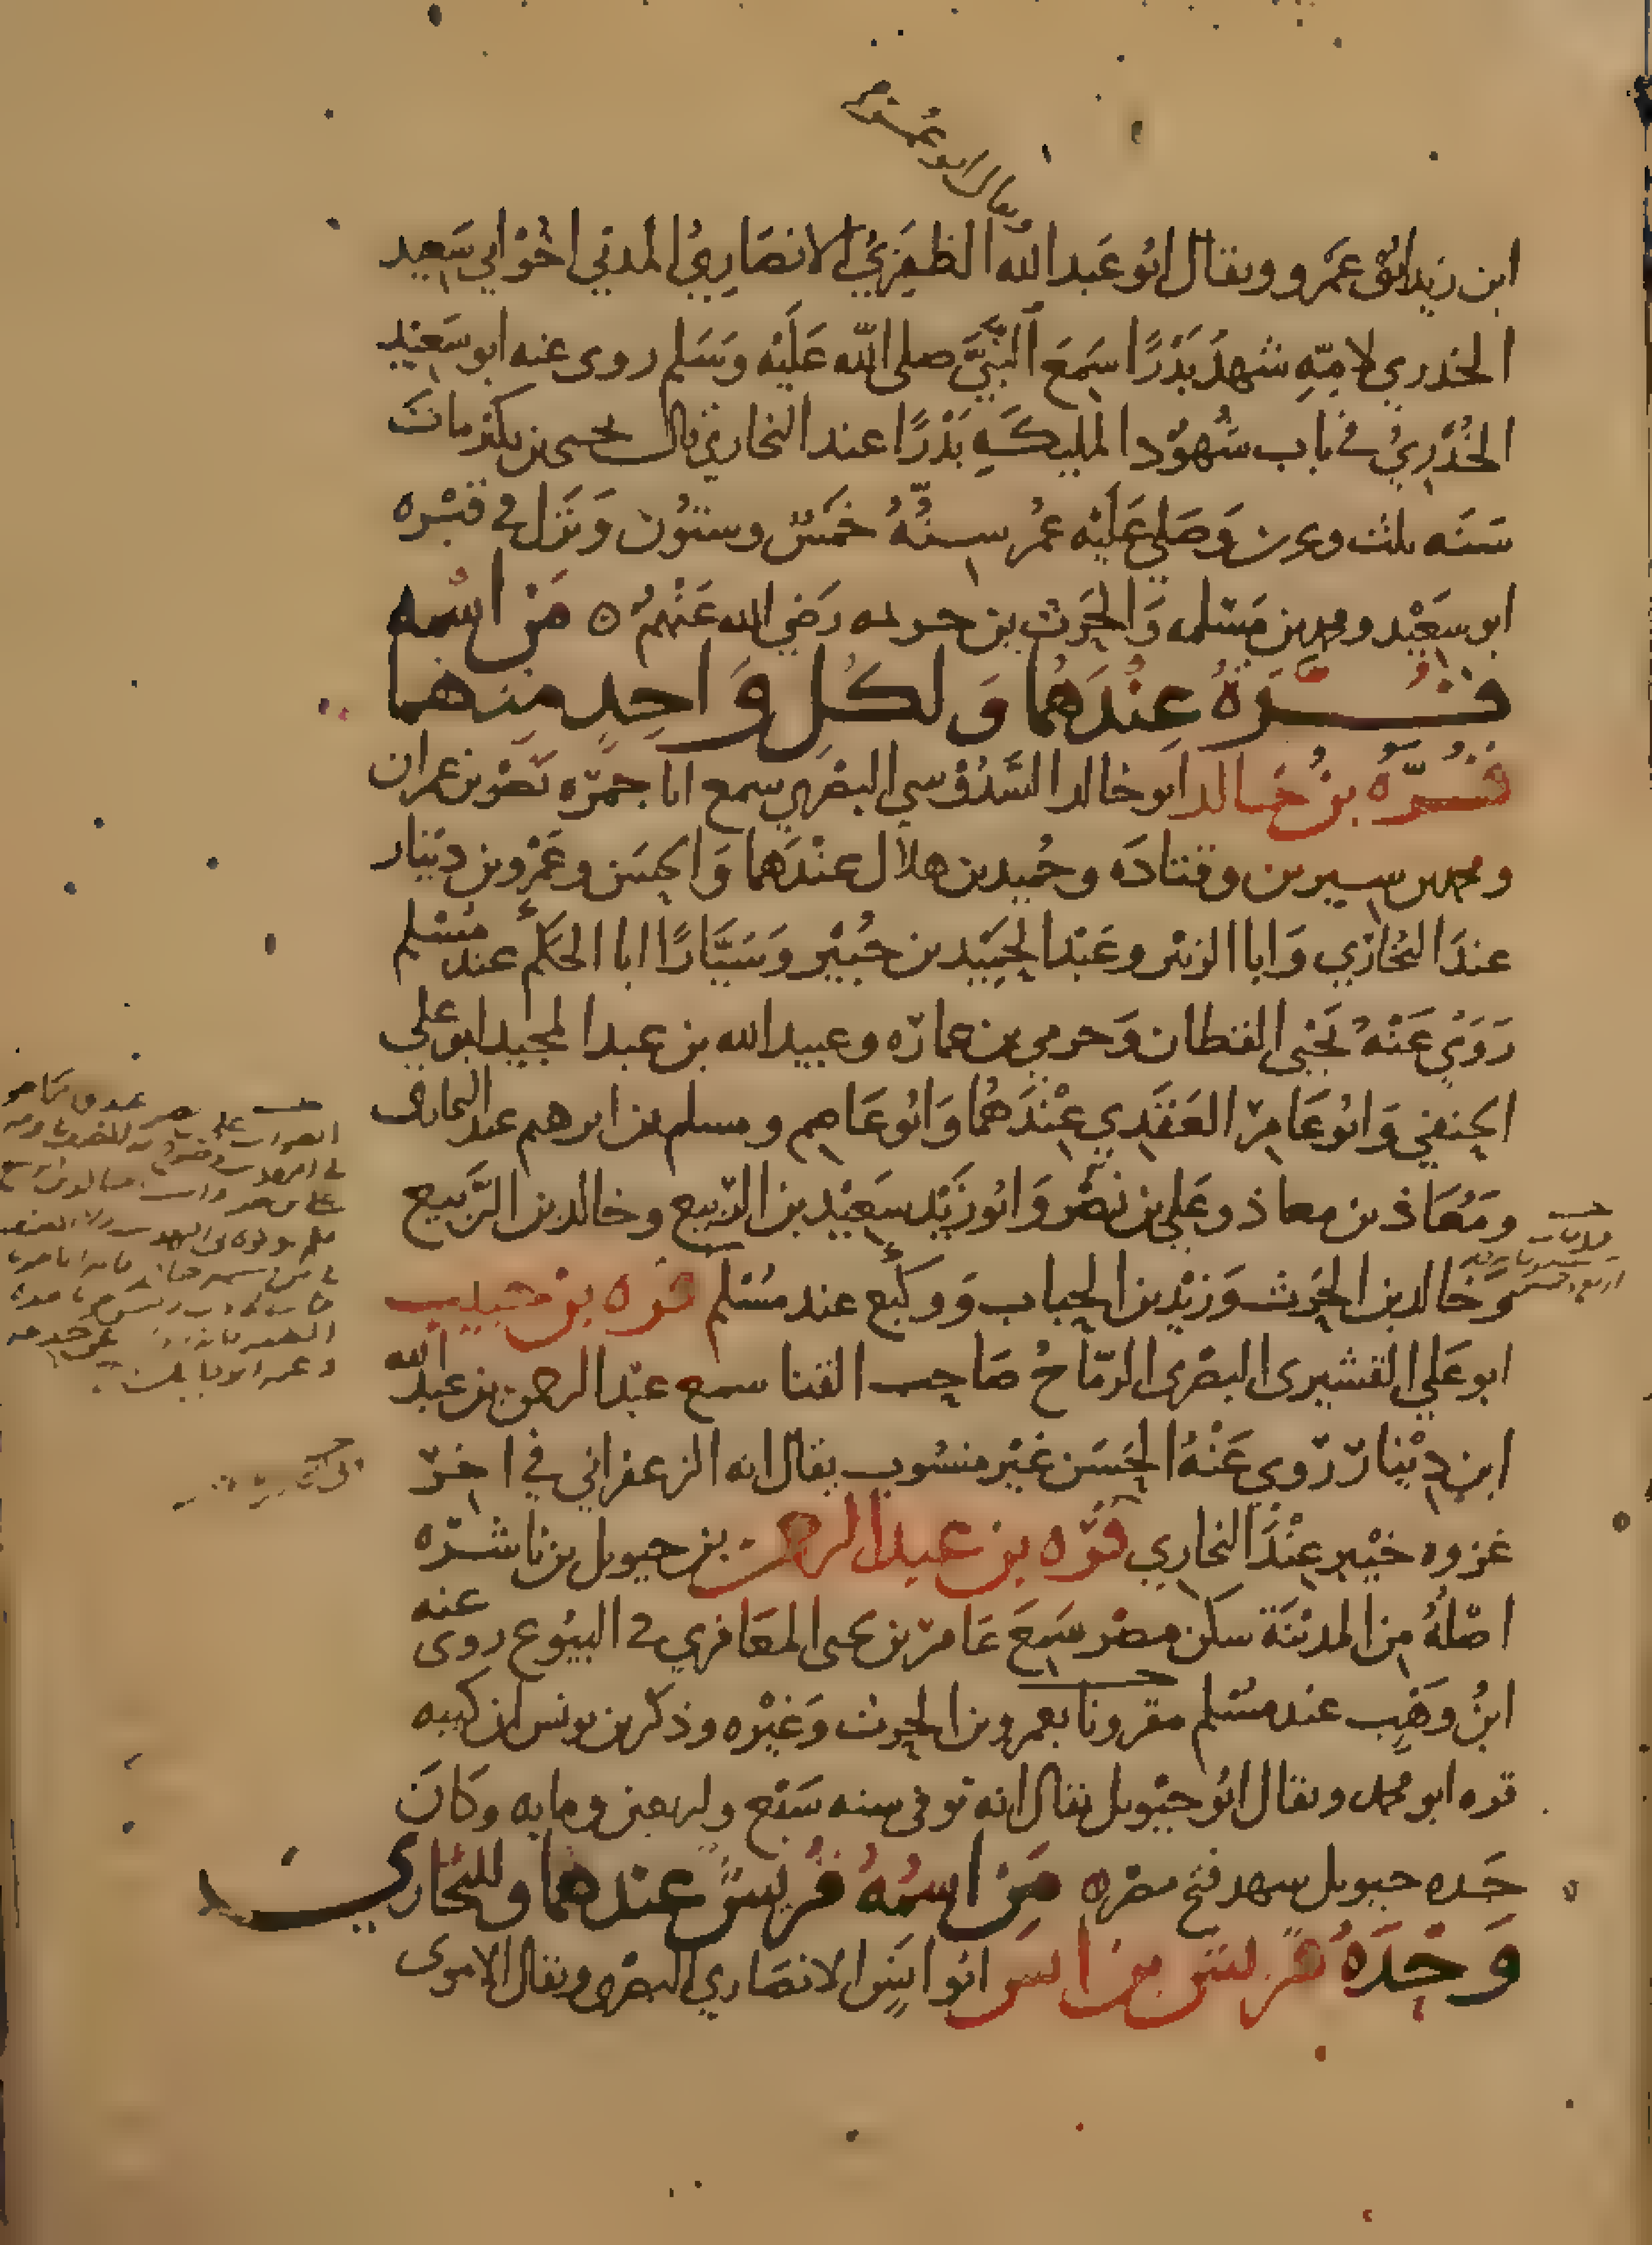 ويقال ابو عمر
ابن زيد ابو عمرو ويقال ابو عبد الله الظفري الانصاري المدني اخو ابي سعيد
الخدري لامه شهد بدرا سمع النبي صلى الله عليه وسلم روى عنه ابو سعيد
الخدري في باب شهود المليكة بدرا عند البخاري قال يحيى بن بكير مات
سنه ثلث وعشرين وصلى عليه عمر سنه خمس وستون ونزل في قبره
ابو سعيد ومحمد بن مسلمه والحرث بن خزمه رضي الله عنهم ٥ من اسمه
قرة عندهما ولكل واحد منهما
قرة بن خالد ابو خالد السدوسي البصري سمع ابا جمره نصر بن عمران
ومحمد بن سيرين وقتاده وحميد بن هلال عندهما والحسن وعمرو بن دينار
عند البخاري وابا الزبير وعبد الحميد بن جبير وسيارا ابا الحكم عند مسلم
روى عنه يحيى القطان وحرمي بن عماره وعبيد الله بن عبد المجيد ابو علي
الحنفي وابو عامر العقدي عندهما وابو عاصم ومسلم بن ابرهيم عند البخاري
ومعاذ بن معاذ وعلي بن نصر وابو زيد سعيد بن الربيع وخالد بن الربيع
وخالد بن الحرث وزيد بن الحباب ووكيع عند مسلم قره بن حبيب
ابو علي القشيري البصري الرماح صاحب القنا سمع عبد الرحمن بن عبد الله
ابن دينار روى عنه الحسن غير منسوب يقال انه الزعفراني في اخر
غزوه خيبر عند البخاري قره بن عبد الرحمن بن حيويل بن ناشره
اصله من المدينة سكن مصر سمع عامر بن يحيى المعافري في البيوع روى عنه
ابن وهب عند مسلم مقرونا بعمرو بن الحرث وغيره وذكر بن يونس ان كنيه
قره ابو محمد ويقال ابو حيويل يقال انه توفي سنه سبع واربعين ومايه وكان
جده حيويل شهد فتح مصر ٥ من اسمه قريش عندهما وللبخاري
وحده قريش بن انس ابو انس الانصاري البصري ويقال الاموي